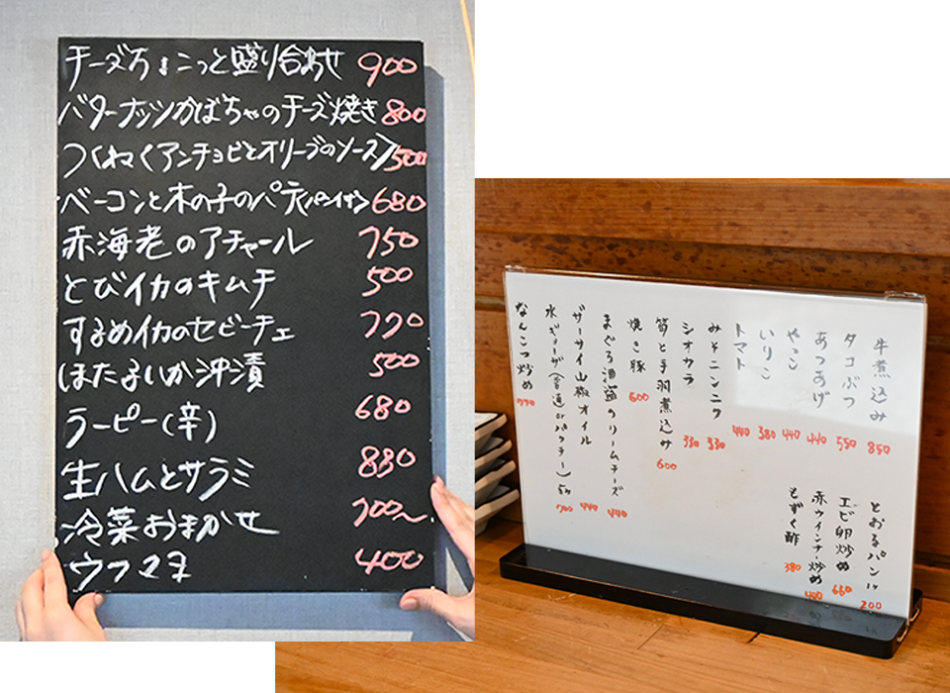 チーズちょこっと盛り合わせ 900
バターナッツかぼちゃのチーズ焼き 800
つくねくアンチョビとオリーブのソース〉500
ベーコンと木の子のパテ(パンイザン) 680
赤海老のアチャール 750
とびイカのキムチ 500
するめイカのセビーチェ 770
ほたるいか沖漬 500
ラーピー(辛) 680
生ハムとサラミ 880
冷菜おまかせ 700〜
ウフマヨ 400
牛煮込み 850
タコぶつ 550
あつあげ 440
やっこ 440
いりこ 380
トマト 440
みそニンニク 330
シオカラ 330
筍と手羽煮込み 600
焼き豚 600
まぐろ酒盗クリームチーズ 440
ザーサイ山椒オイル 440
水ギョーザ(普通orパクチー)5ヶ 700
なんこつ炒め 770
とおるパン 1ヶ 200
エビ卵炒め 660
赤ウインナー炒め 480
もずく酢 380